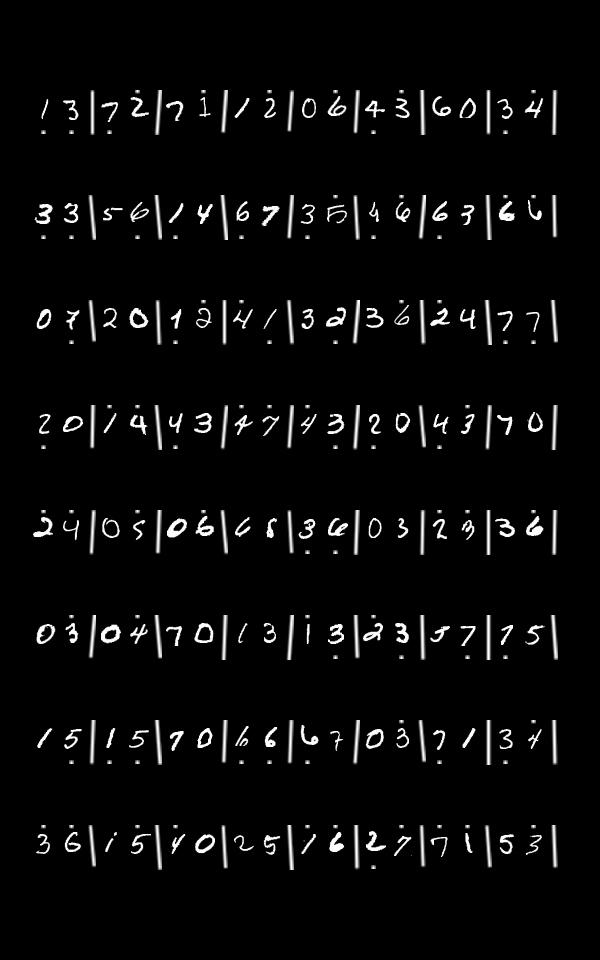 1̣ 3̣ | 7̣ 2̇ | 7 1̇ | 1 2̇ | 0 6̇ | 4̣ 3̇ | 6 0 | 3̣ 4̇ |
3̣ 3̣ | 5 6̣ | 1̣ 4 | 6̣ 7 | 3̣ 5̇ | 4̣ 6̇ | 6̣ 3 | 6̣ 6̇ |
0 7̣ | 2 0 | 1̣ 2̇ | 4̇ 1̣ | 3 2̣ | 3 6̇ | 2̇ 4 | 7̣ 7̣ |
2̣̇ 0 | 1̇ 4̇ | 4̣ 3 | 4̇ 7̇ | 4̇ 3̣ | 2̣̇ 0 | 4̣ 3̇ | 7 0 |
2̇ 4̇ | 0 5̇ | 0̇ 6̇ | 6̇ 8̇ | 3̣̇ 6̣ | 0 3 | 2̇ 3̇ | 3 6̇ |
0 3̇ | 0 4̇ | 7 0 | 1̇ 3 | 1̇ 3̣ | 2̇ 3̣ | 5 7̣ | 7̣̇ 5 |
1 5̣ | 1̣ 5̣ | 7̣ 0 | 6̣ 6̣ | 6̣ 7 | 0 3̇ | 7̣ 1 | 3̣ 4̇ |
3̇ 6̇ | 1 5̇ | 4̇ 0 | 2̇ 5̇ | 1̇ 6̇ | 2̣̇ 7̇ | 7̇ 1̇ | 5 3̇ |